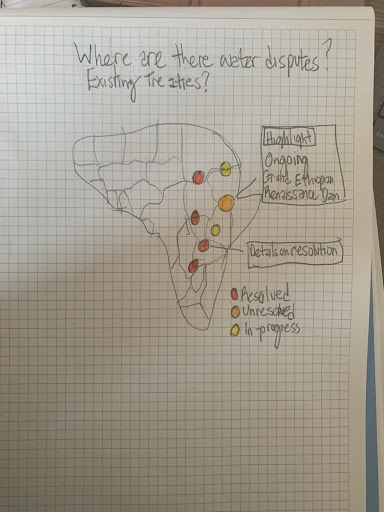 Where are there water disputes?
Existing Treaties?
Highlight
Ongoing
Grand Ethiopian
Renaissance Dam
Details on resolution
Resolved
Unresolved
In-progress